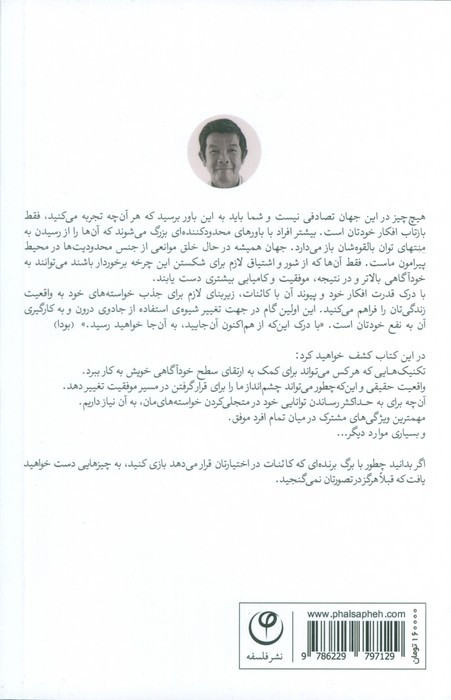 هیچ‌چیز در این جهان تصادفی نیست و شما باید به این باور برسید که هر آن‌چه تجربه می‌کنید، فقط
بازتاب افکار خودتان است. بیشتر افراد با باورهای محدودکننده‌ای بزرگ می‌شوند که آن‌ها را از رسیدن به
منتهای توان بالقوه‌شان باز می‌دارد. جهان همیشه در حال خلق موانعی از جنس محدودیت‌ها در محیط
پیرامون ماست. فقط آن‌ها که از شور و اشتیاق لازم برای شکستن این چرخه برخوردار باشند می‌توانند به
خودآگاهی بالاتر و در نتیجه، موفقیت و کامیابی بیشتری دست یابند.
با درک قدرت افکار خود و پیوند آن با کائنات، زیربنای لازم برای جذب خواسته‌های خود به واقعیت
زندگی‌تان را فراهم می‌کنید. این اولین گام در جهت تغییر شیوه‌ی استفاده از جادوی درون و به کارگیری
آن به نفع خودتان است. «با درک این‌که از هم‌اکنون آن‌جایید، به آن‌جا خواهید رسید.» (بودا)
در این کتاب کشف خواهید کرد:
تکنیک‌هایی که هرکس می‌تواند برای کمک به ارتقای سطح خودآگاهی خویش به کار ببرد.
واقعیت حقیقی و این‌که چطور می‌تواند چشم‌انداز ما را برای قرار گرفتن در مسیر موفقیت تغییر دهد.
آن‌چه برای به حداکثر رساندن توانایی خود در متجلی‌کردن خواسته‌های‌مان، به آن نیاز داریم.
مهمترین ویژگی‌های مشترک در میان تمام افرد موفق.
و بسیاری موارد دیگر...
اگر بدانید چطور با برگ برنده‌ای که کائنات در اختیارتان قرار می‌دهد بازی کنید، به چیزهایی دست خواهید
یافت که قبلاً هرگز در تصورتان نمی‌گنجید.
www.phalsapheh.com
نشر فلسفه
9 786229 797129
۱۶۰۰۰۰ تومان